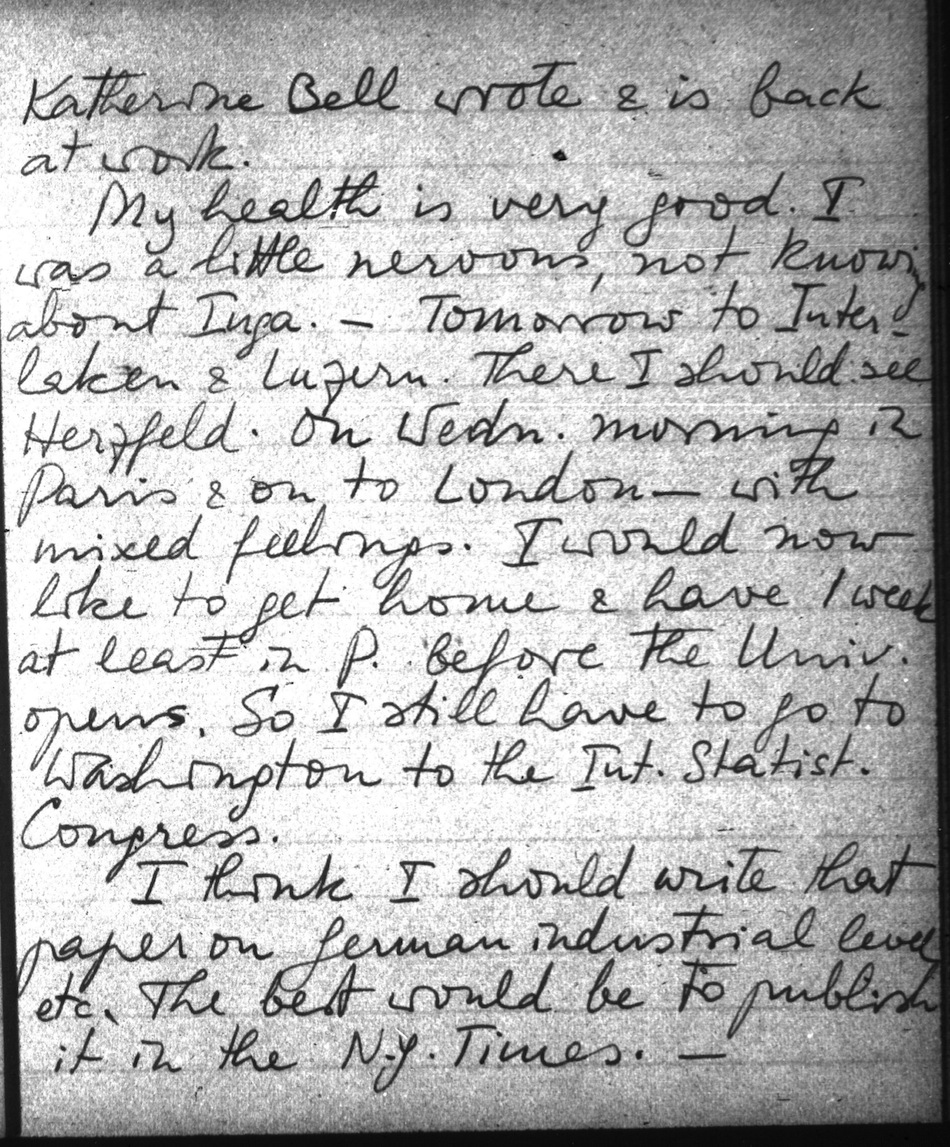 Katherine Bell wrote & is back
at work.
My health is very good. I
was a little nervous, not knowing
about Inga. — Tomorrow to Inter-
laken & Luzern. There I should see
Herzfeld. On Wedn. morning in
Paris & on to London — with
mixed feelings. I would now
like to get home & have 1 week
at least in P. before the Univ.
opens. So I still have to go to
Washington to the Int. Statist.
Congress.
I think I should write that
paper on German industrial level
etc. The best would be to publish
it in the N.Y. Times. —